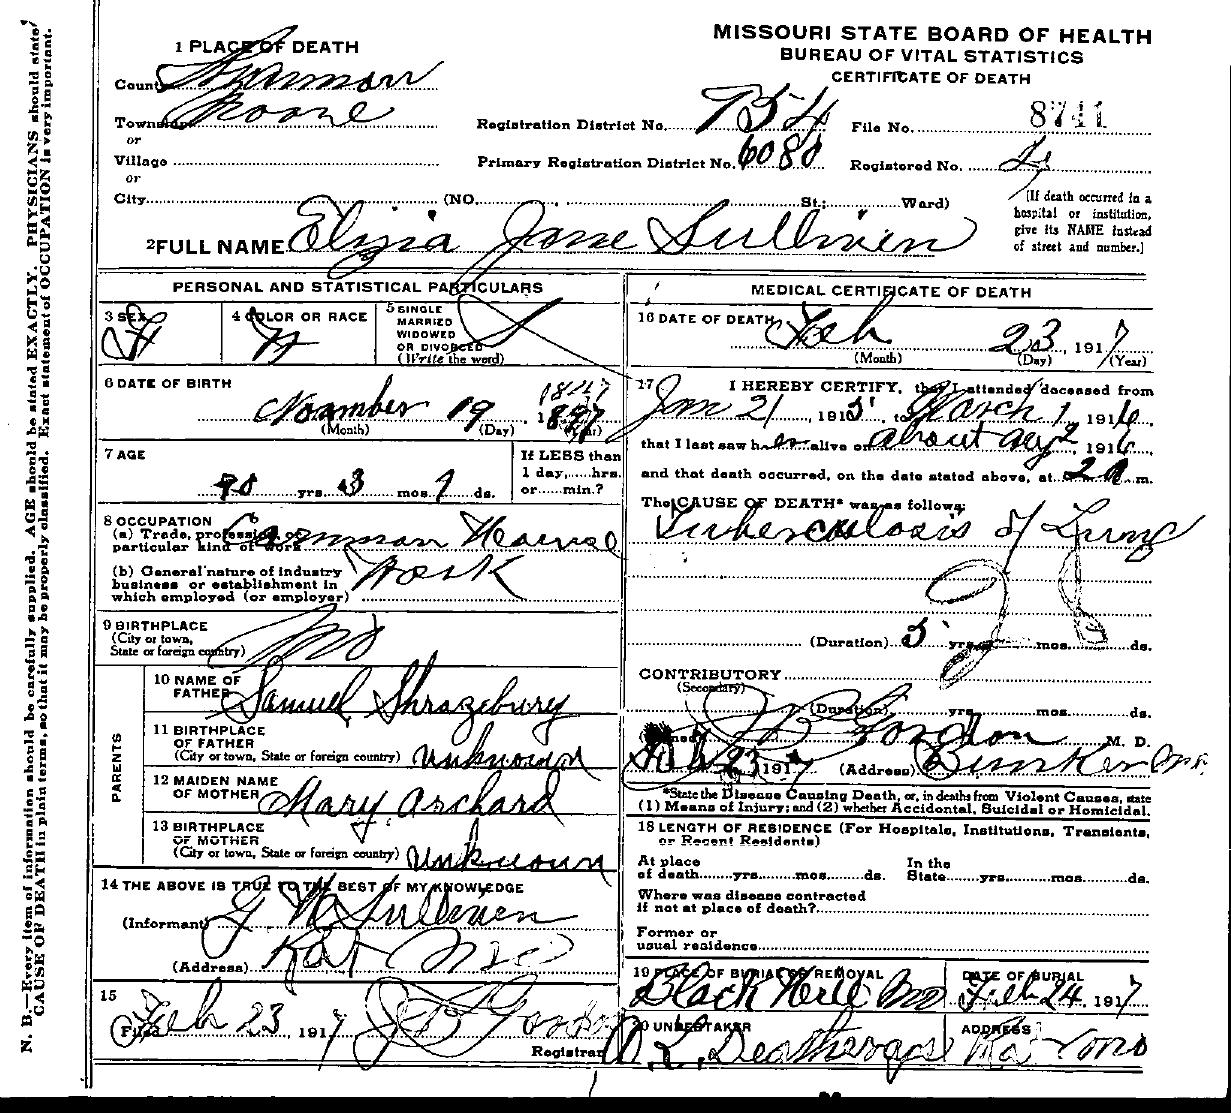 MISSOURI STATE BOARD OF HEALTH
BUREAU OF VITAL STATISTICS
CERTIFICATE OF DEATH
1 PLACE OF DEATH
County Shannon
Township Moore
or
Village
or
City (NO. St.; Ward)
Registration District No. 754 File No. 8741
Primary Registration District No. 6080 Registered No.
[If death occurred in a
hospital or institution,
give its NAME instead
of street and number.]
2 FULL NAME Eliza Jane Sulliven
PERSONAL AND STATISTICAL PARTICULARS
3 SEX F
4 COLOR OR RACE W
5 SINGLE
MARRIED
WIDOWED
OR DIVORCED
(Write the word)
6 DATE OF BIRTH
1847
November 19 1897
(Month) (Day) (Year)
7 AGE
yrs. 3 mos. ds.
If LESS than
1 day,......hrs.
or......min.?
8 OCCUPATION
(a) Trade, profession, or
particular kind of work Common House
(b) General nature of industry
business or establishment in
which employed (or employer) Work
9 BIRTHPLACE
(City or town,
State or foreign country) Mo
PARENTS
10 NAME OF
FATHER Samuel Shrazebury
11 BIRTHPLACE
OF FATHER
(City or town, State or foreign country) Unknown
12 MAIDEN NAME
OF MOTHER Mary Archard
13 BIRTHPLACE
OF MOTHER
(City or town, State or foreign country) Unknown
14 THE ABOVE IS TRUE TO THE BEST OF MY KNOWLEDGE
(Informant) G W Sulliven
(Address) Rat Mo
15
Filed Feb 23 1917 J B Gordon
Registrar
MEDICAL CERTIFICATE OF DEATH
16 DATE OF DEATH
Feb 23, 1917
(Month) (Day) (Year)
17 I HEREBY CERTIFY, that I attended deceased from
Jan 21, 1915 to March 1, 1916,
that I last saw her alive on about Aug 2, 1916,
and that death occurred, on the date stated above, at 2 a m.
The CAUSE OF DEATH* was as follows:
Tuberculosis of Lung
28
(Duration) 5 yrs. mos. ds.
CONTRIBUTORY
(Secondary)
(Duration) yrs. mos. ds.
(Signed) J B Gordon M. D.
Feb 23 1917 (Address) Bunker Mo.
*State the Disease Causing Death, or, in deaths from Violent Causes, state
(1) Means of Injury; and (2) whether Accidental, Suicidal or Homicidal.
18 LENGTH OF RESIDENCE (For Hospitals, Institutions, Transients,
or Recent Residents)
At place In the
of death......yrs......mos......ds. State......yrs......mos......ds.
Where was disease contracted
if not at place of death?
Former or
usual residence
19 PLACE OF BURIAL OR REMOVAL DATE OF BURIAL
Black Hill Mo Feb 24, 1917
20 UNDERTAKER ADDRESS
L. Deatherage Rat Mo
N. B.—Every item of information should be carefully supplied. AGE should be stated EXACTLY. PHYSICIANS should state
CAUSE OF DEATH in plain terms, so that it may be properly classified. Exact statement of OCCUPATION is very important.